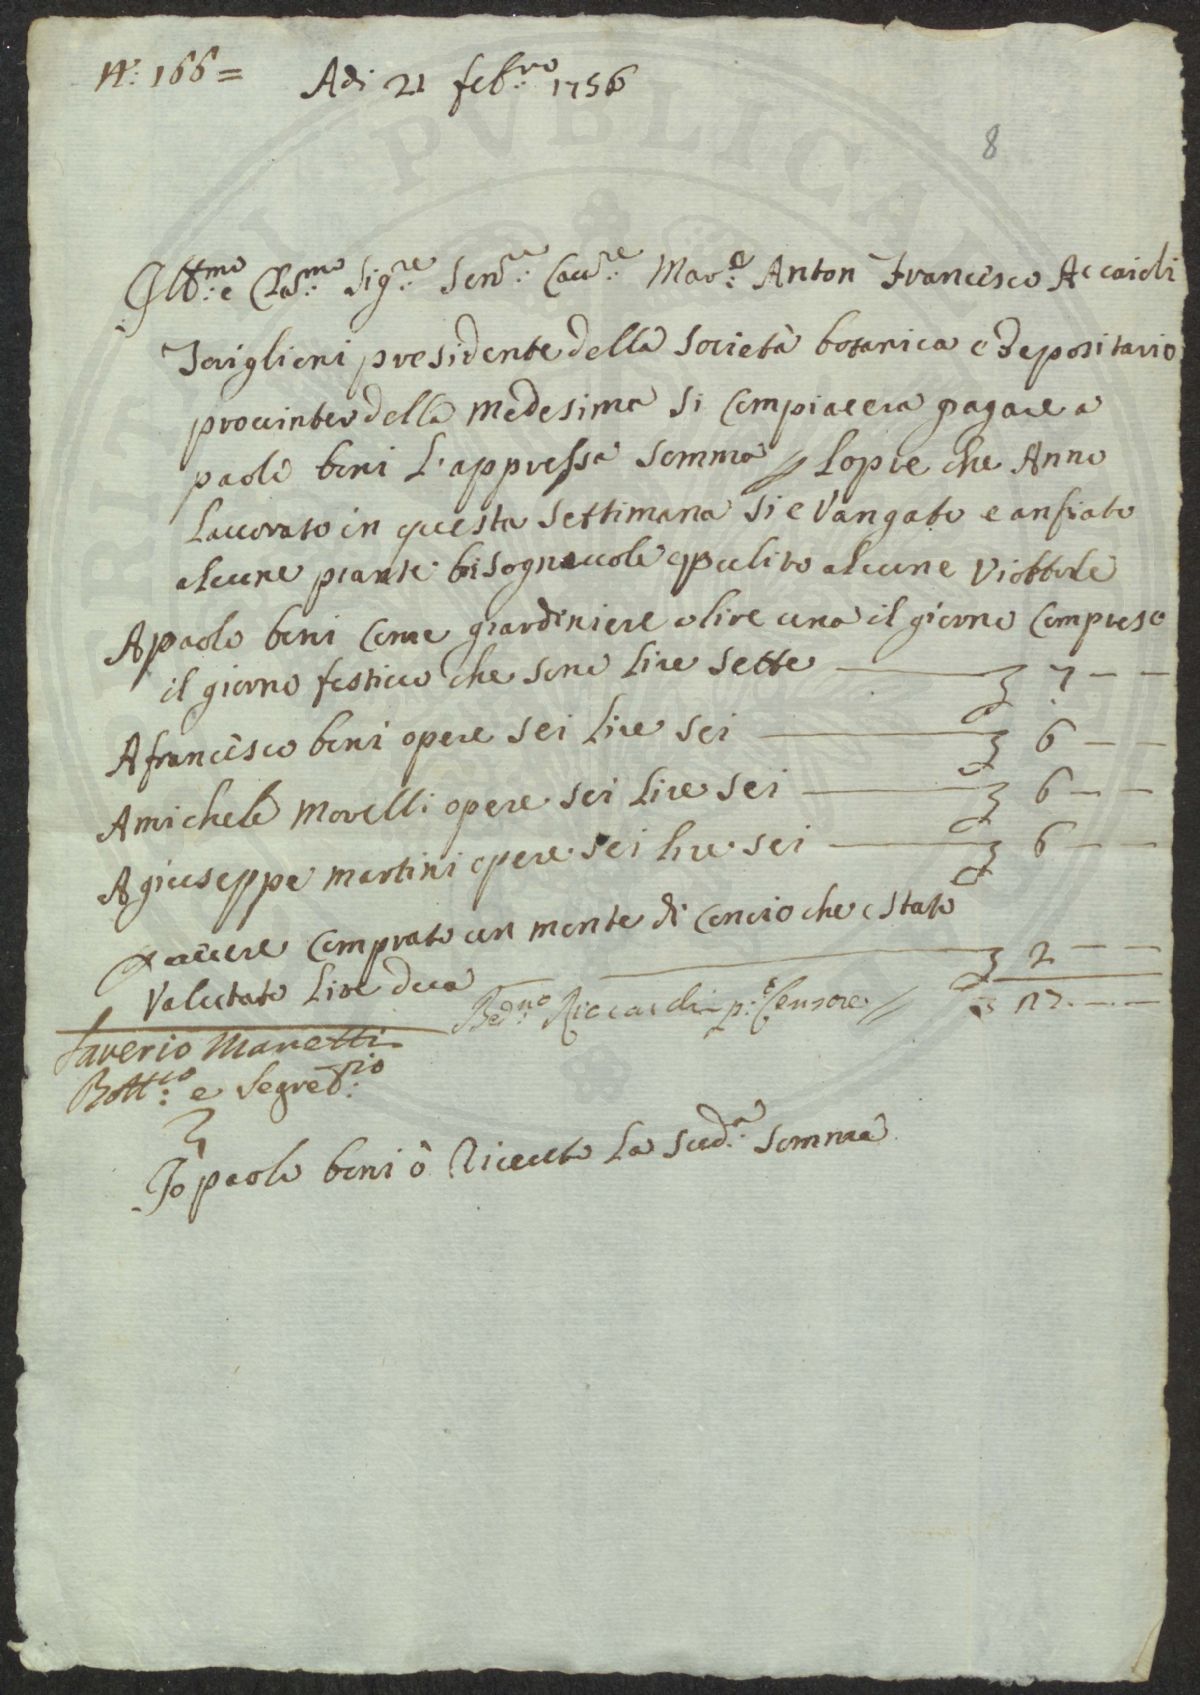 N.° 166 =
Adi 21 feb.ro 1756
8
Ill.mo e Clas.mo Sig.re Sen.re Cau.re Mar.e Anton Francesco Accaioli
Toriglioni presidente della società botanica e depositario
prouinter della medesima si Compiacera pagare a
paolo boni L'appressa somma p Lopre che Anno
Lauorato in questa settimana si e Vangato e anfiato
alcune piante bisogneuole epulito alcune Viottole
Apaolo boni Come giardiniere alire una il giorno Compreso
il giorno festiuo che sono lire sette 7 – –
Afrancesco boni opere sei lire sei 6 – –
Amichele Morelli opere sei lire sei 6 – –
Agiuseppe martini opere sei lire sei 6 – –
p auere Comprato un monte di Concio che e Stato
Valutato lire dua 2 – –
Bed.no Riccardi p.° Censore 27 – –
Saverio Manetti
Bott.co e Segret.rio
Jo paolo boni ò Riceuto La sud.a somma